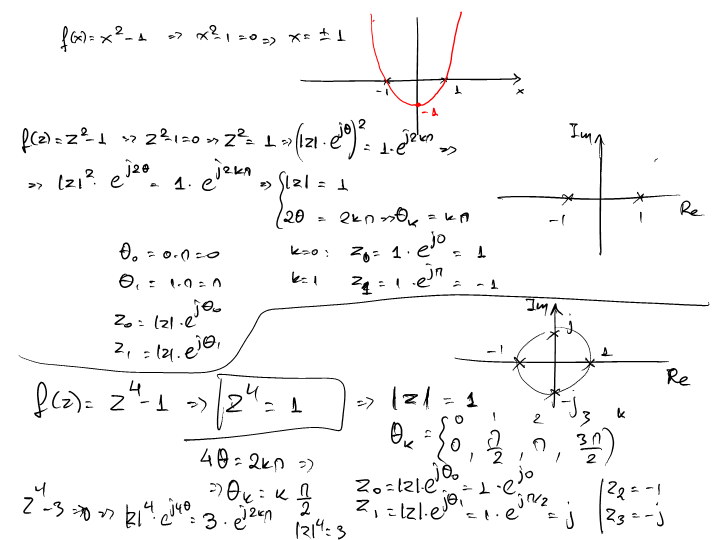 f(x) = x² - 1 ⇒ x² - 1 = 0 ⇒ x = ± 1
-1 1 x
-1
f(z) = z² - 1 ⇒ z² - 1 = 0 ⇒ z² = 1 ⇒ (|z|·e^{jθ})² = 1·e^{j2kπ} ⇒
⇒ |z|²· e^{j2θ} = 1· e^{j2kπ} ⇒ { |z| = 1
2θ = 2kπ ⇒ θₖ = kπ
Im
-1 1 Re
θ₀ = 0·π = 0 k=0: z₀ = 1·e^{j0} = 1
θ₁ = 1·π = π k=1 z₁ = 1·e^{jπ} = -1
z₀ = |z|·e^{jθ₀}
z₁ = |z|·e^{jθ₁}
Im
j
-1 1
Re
-j
f(z) = z⁴ - 1 ⇒ z⁴ = 1 ⇒ |z| = 1
0 1 2 3 k
θₖ = {0, π/2, π, 3π/2}
4θ = 2kπ ⇒
⇒ θₖ = k π/2
z₀ = |z|·e^{jθ₀} = 1·e^{j0}
z₁ = |z|·e^{jθ₁} = 1·e^{jπ/2} = j
z₂ = -1
z₃ = -j
z⁴ - 3 = 0 ⇒ |z|⁴·e^{j4θ} = 3·e^{j2kπ}
|z|⁴ = 3